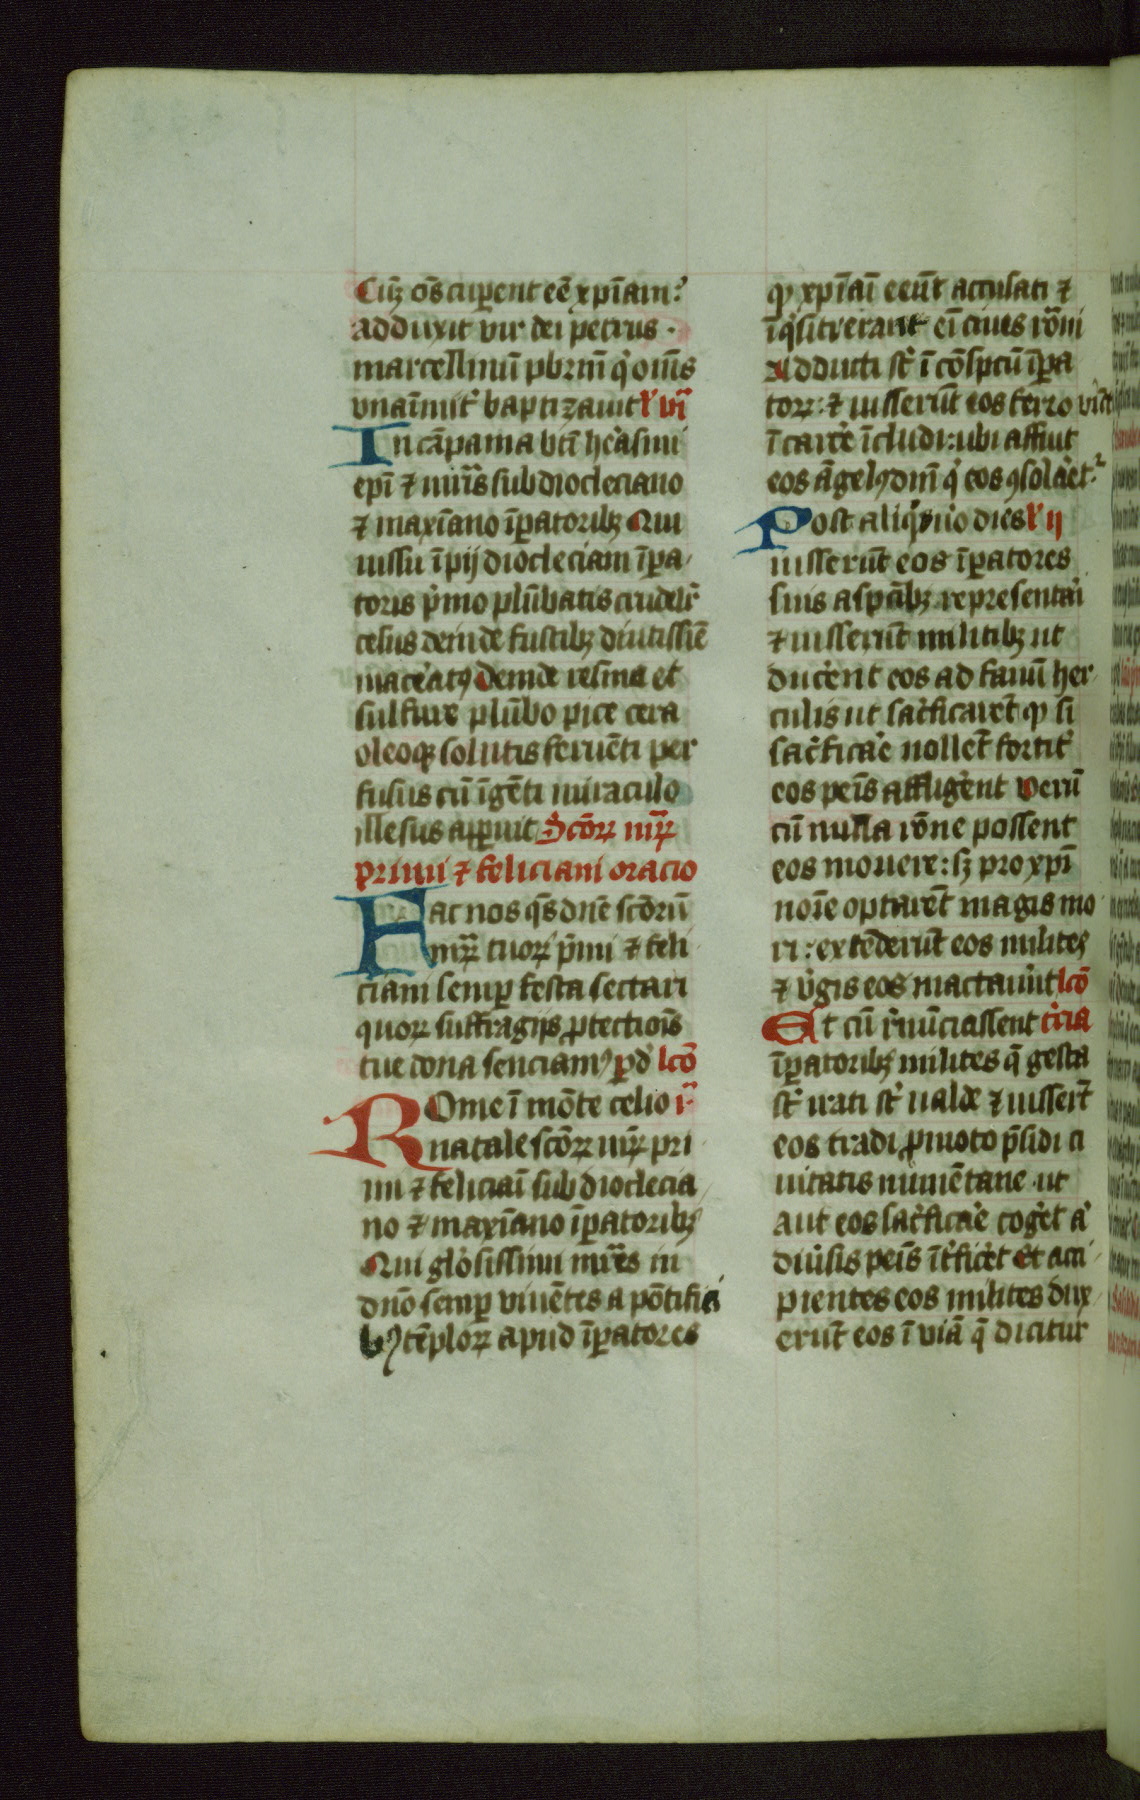 Cūq̃ oēs cuperent eē xp̄iani:
adduxit vir dei petrus ·
marcellinū pbr̄m q̇ om̄s
vnaīmit̾ baptizauit l̾ vīa
In cāpania b̄ti h̾asmi
ep̄i ⁊ mr̄is sub diocleciano
⁊ maxīano īp̱atoribꝫ Qui
iussu īpij diocleciani īp̱a
toris p̾mo plūbatis crudelit̾
cesus deinde fustibꝫ diutissīe
mac̾atꝰ deinde resina et
sulfure plūbo pice cera
oleoqꝫ solutis feruēti per
fusus cū īgēti miraculo
illesus apparuit Scōꝝ mr̄ꝝ
primi ⁊ feliciani oracio
Fac nos q̄s dn̄e sc̄oꝝ
mr̄ꝝ tuoꝝ p̾mi ⁊ feli
ciani semp̱ festa sectari
quoꝝ suffragijs ꝓtectiōis
tue dona senciamꝰ p̱ d̾ lcō
Rome ī mōte celio i̾
natale scōꝝ mr̄ꝝ pri
mi ⁊ feliciāi sub dioclecia
no ⁊ maxīano īp̱atoribꝫ
Qui gl̾osissimi mr̄es in
dn̄o semp̱ viuētes a pōtifici
bꝰ tēploꝝ apud īp̱atores
qꝫ xp̄iāi eēnt accusati ⁊
īq̇siuerant eī ciues rōni
Adducti st̾ ī cōspcū īp̱a
toꝝ: ⁊ iusserūt eos ferro vict̾
ī carc̾e īcludi: ubi affuit
eos āgelꝰ dn̄i q̇ eos ꝯsolar̾et̾
Post aliq̇nto dies l̾ ij
iusserūt eos īp̱atores
suis aspctibꝫ representari
⁊ iusserūt militibꝫ ut
ducer̾nt eos ad fanū her
culis ut sac̾ficarēt qꝫ si
sac̾ficar̾e nollēt fortit̾
eos penīs affliger̾nt Verū
cū nulla rōne possent
eos mouere: sꝫ pro xp̄i
noīe optarēt magis mo
ri: extēderūt eos milites
⁊ v̾gis eos mactauer̾ut lcō
Et cū r̾nūciassent t̾cia
īp̱atoribꝫ milites q̄ gesta
st̾ irati st̾ ualde ⁊ iusser̄t
eos tradi ꝓmoto p̄sidi ci
uitatis numētane ut
aut eos sac̾ficar̾e coger̾et a̾
diu̾sis penīs īt̾ficer̾et Et acci
pientes eos milites dux
erūt eos ī viā q̄ dicitur